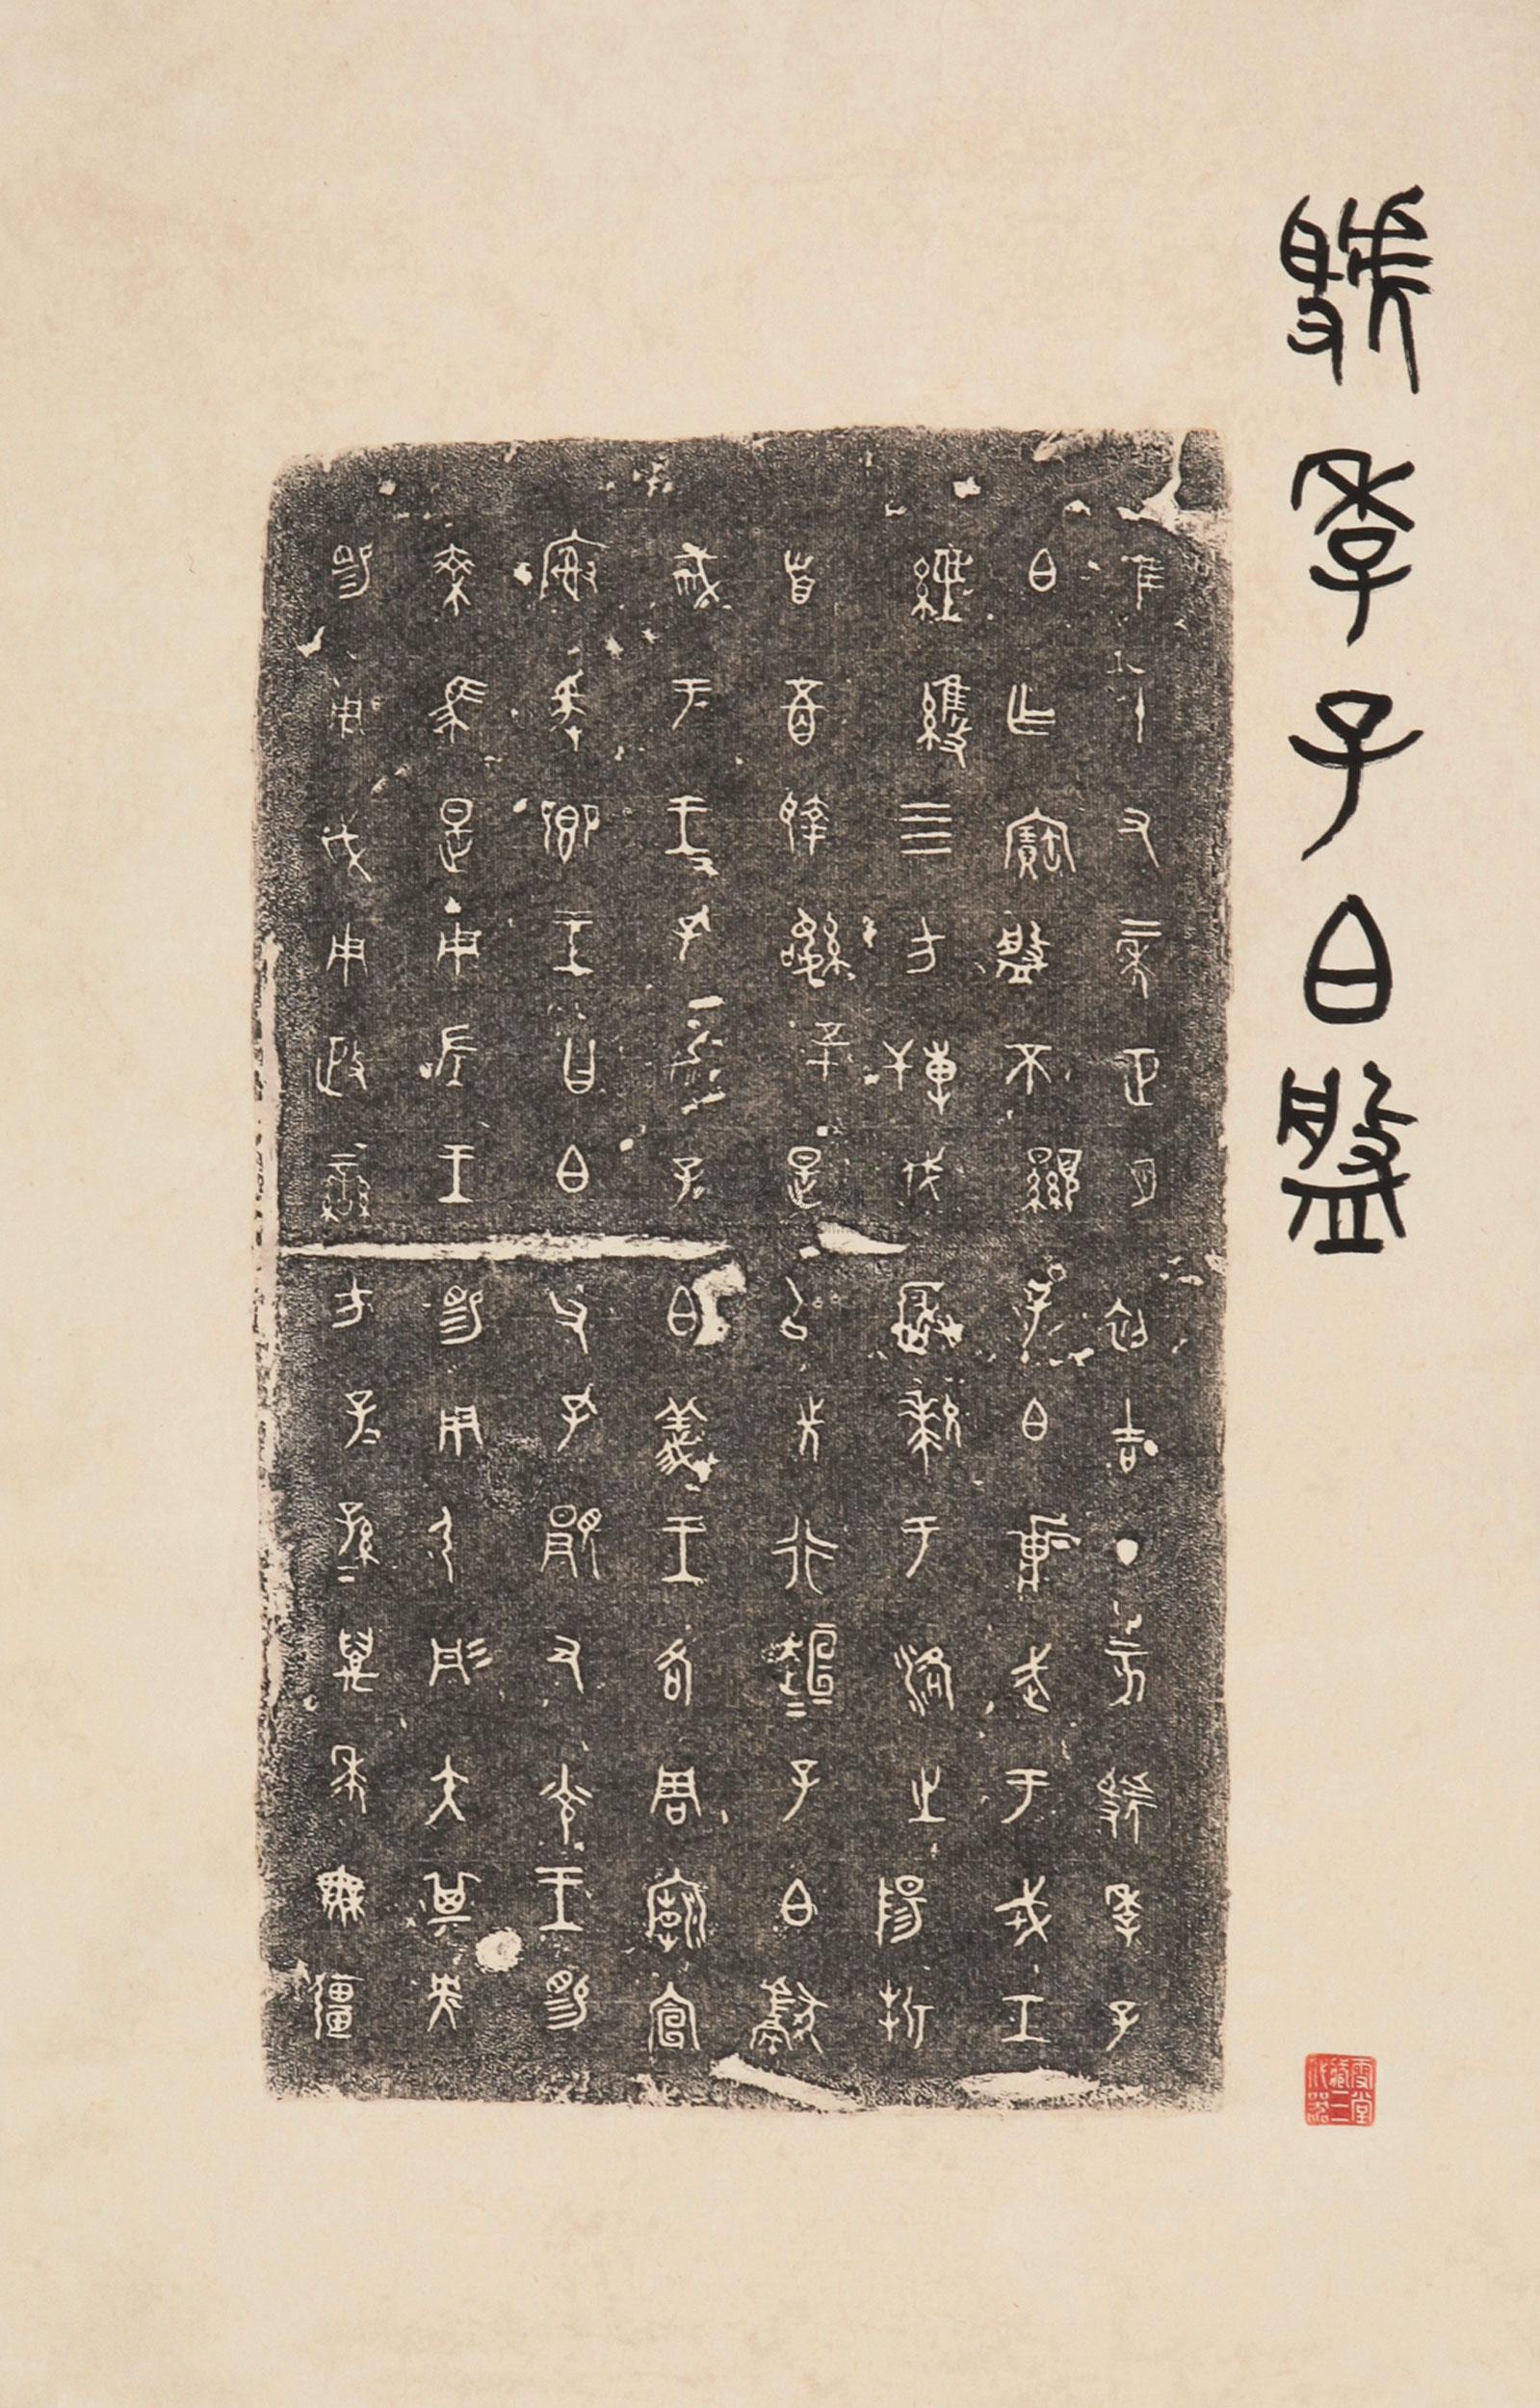 虢季子白盤
隹十又二年正月初吉丁亥虢季子
白乍寶盤不顯子白壯武于戎工
經維四方搏伐玁狁于洛之陽折
首五百執訊五十是以先行趄=子白獻
馘于王=孔加子白義王各周廟宣
廚爰卿王曰白父孔顯又光王睗
乘馬是用左王睗用弓彤矢其央
睗用戉用政蠻方子=孫=萬年無疆